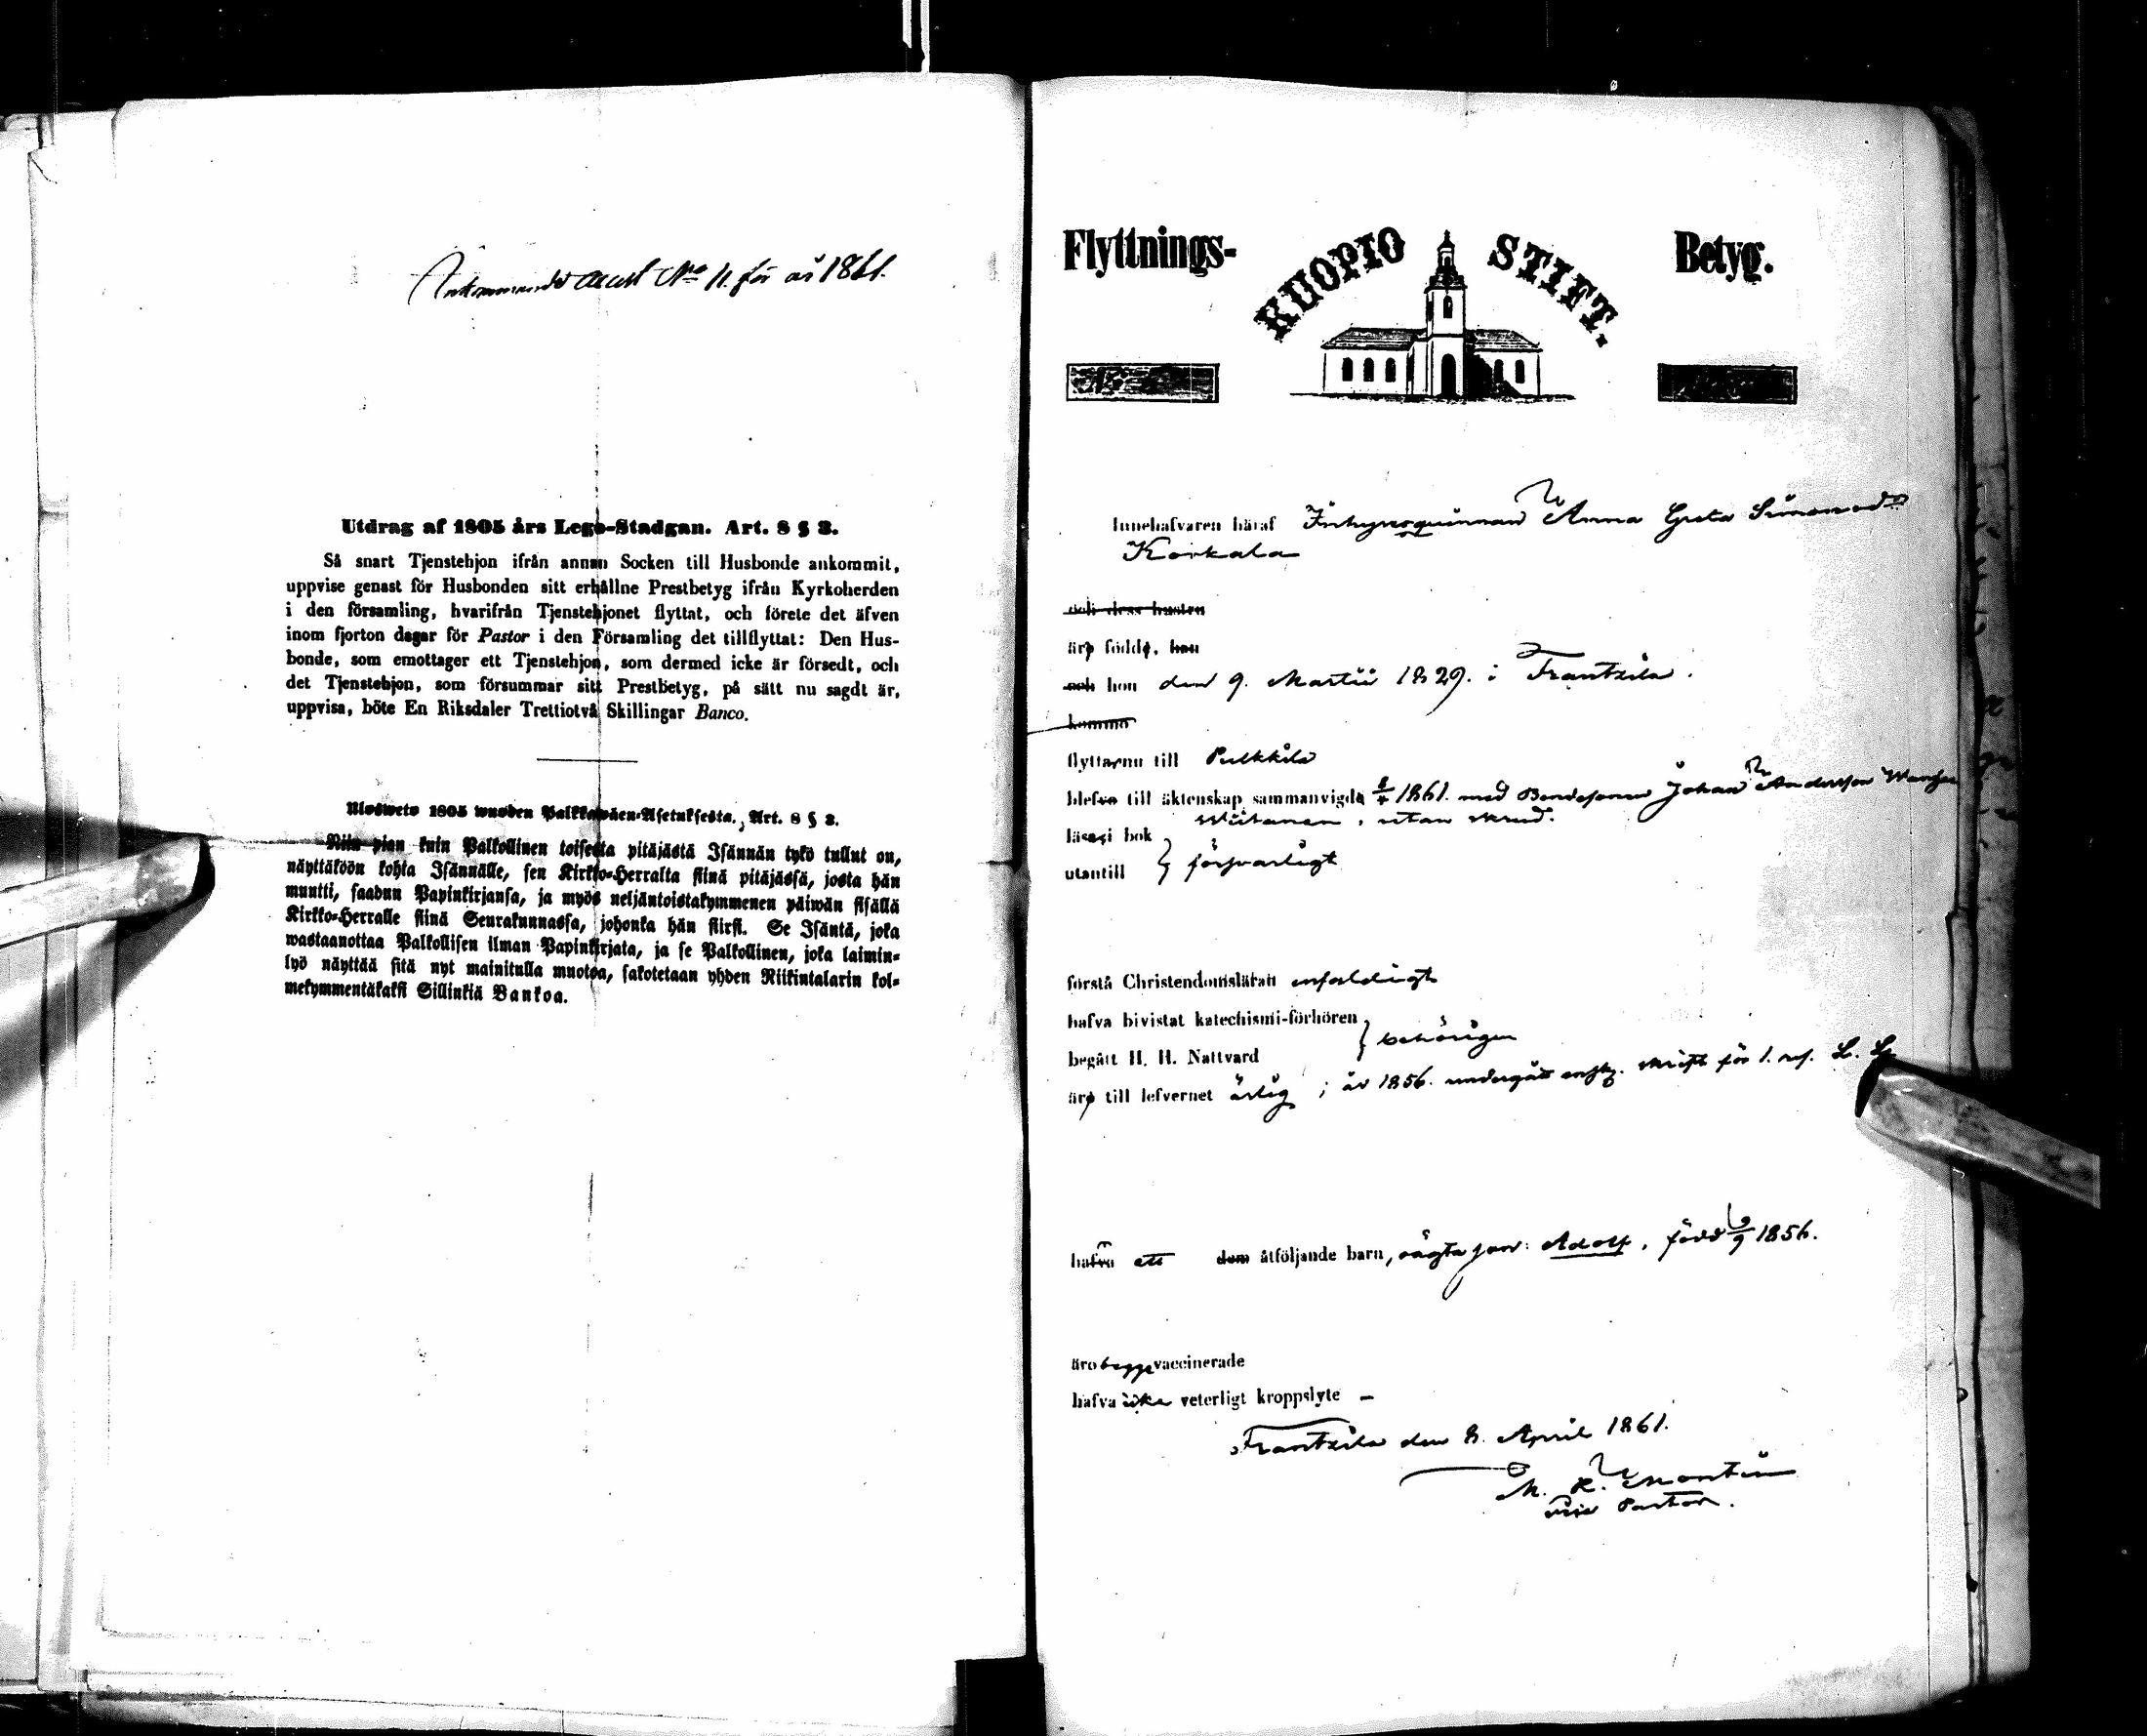 Ankommande attest No 11. för år 1861.
Utdrag af 1805 års Lego-Stadgan. Art. 8 § 3.
Så snart Tjenstehjon ifrån annan Socken till Husbonde ankommit,
uppvise genast för Husbonden sitt erhållne Prestbetyg ifrån Kyrkoherden
i den församling, hvarifrån Tjenstehjonet flyttat, och förete det äfven
inom fjorton dagar för Pastor i den Församling det tillflyttat: Den Hus-
bonde, som emottager ett Tjenstehjon, som dermed icke är försedt, och
det Tjenstehjon, som försummar sitt Prestbetyg, på sätt nu sagdt är,
uppvisa, böte En Riksdaler Trettiotvå Skillingar Banco.
Ulosweto 1805 wuoden Palkkawäen-Asetuksesta. Art. 8 § 3.
Niin pian kuin Palkollinen toisesta pitäjästä Isännän tykö tullut on,
näyttäköön kohta Isännälle, sen Kirkko-Herralta siinä pitäjässä, josta hän
muutti, saadun Papinkirjansa, ja myös neljäntoistakymmenen päiwän sisällä
Kirkko-Herralle siinä Seurakunnassa, johonka hän siirsi. Se Isäntä, joka
wastaanottaa Palkollisen ilman Papinkirjata, ja se Palkollinen, joka laimin-
lyö näyttää sitä nyt mainitulla muotoa, sakotetaan yhden Riikintalarin kol-
mekymmentäkaksi Sillinkiä Bankoa.
Flyttnings- KUOPIO STIFT. Betyg.
Innehafvaren häraf Inhysesqvinnan Anna Greta Simonsd:r
Korkala
och dess hustru
äro födde, han
och hon den 9. Martii 1829. i Frantzila.
komma
flyttarnu till Pulkkila
blefvo till äktenskap sammanvigda 1861. med Bondesonen Johan Andersson
Wiitanen, utan
läsa i bok
utantill } försvarligt
förstå Christendomsläran enfaldigt
hafva bivistat katechismi-förhören
begått H. H. Nattvard } behörigen
äro till lefvernet ärlig; år 1856. undergått ensk. skrift för 1. res. L.
hafva ett dem åtföljande barn, oägta son: Adolf, född 1856.
äro begge vaccinerade
hafva icke veterligt kroppslyte –
Frantzila den 8. April 1861.
M. R. Montin
Vice Pastor.